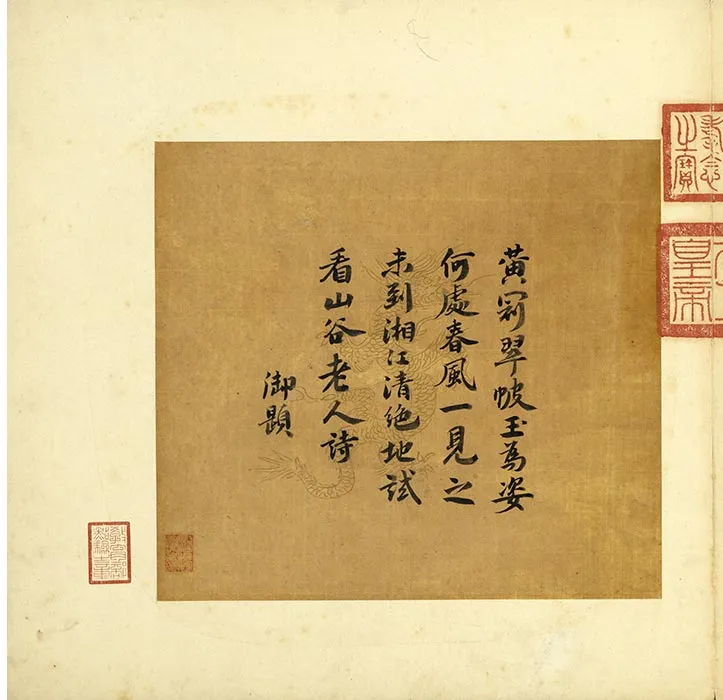 黃冠翠帔玉為姿
何處春風一見之
未到湘江清絶地試
看山谷老人詩
御題
耄念
之寶
皇帝